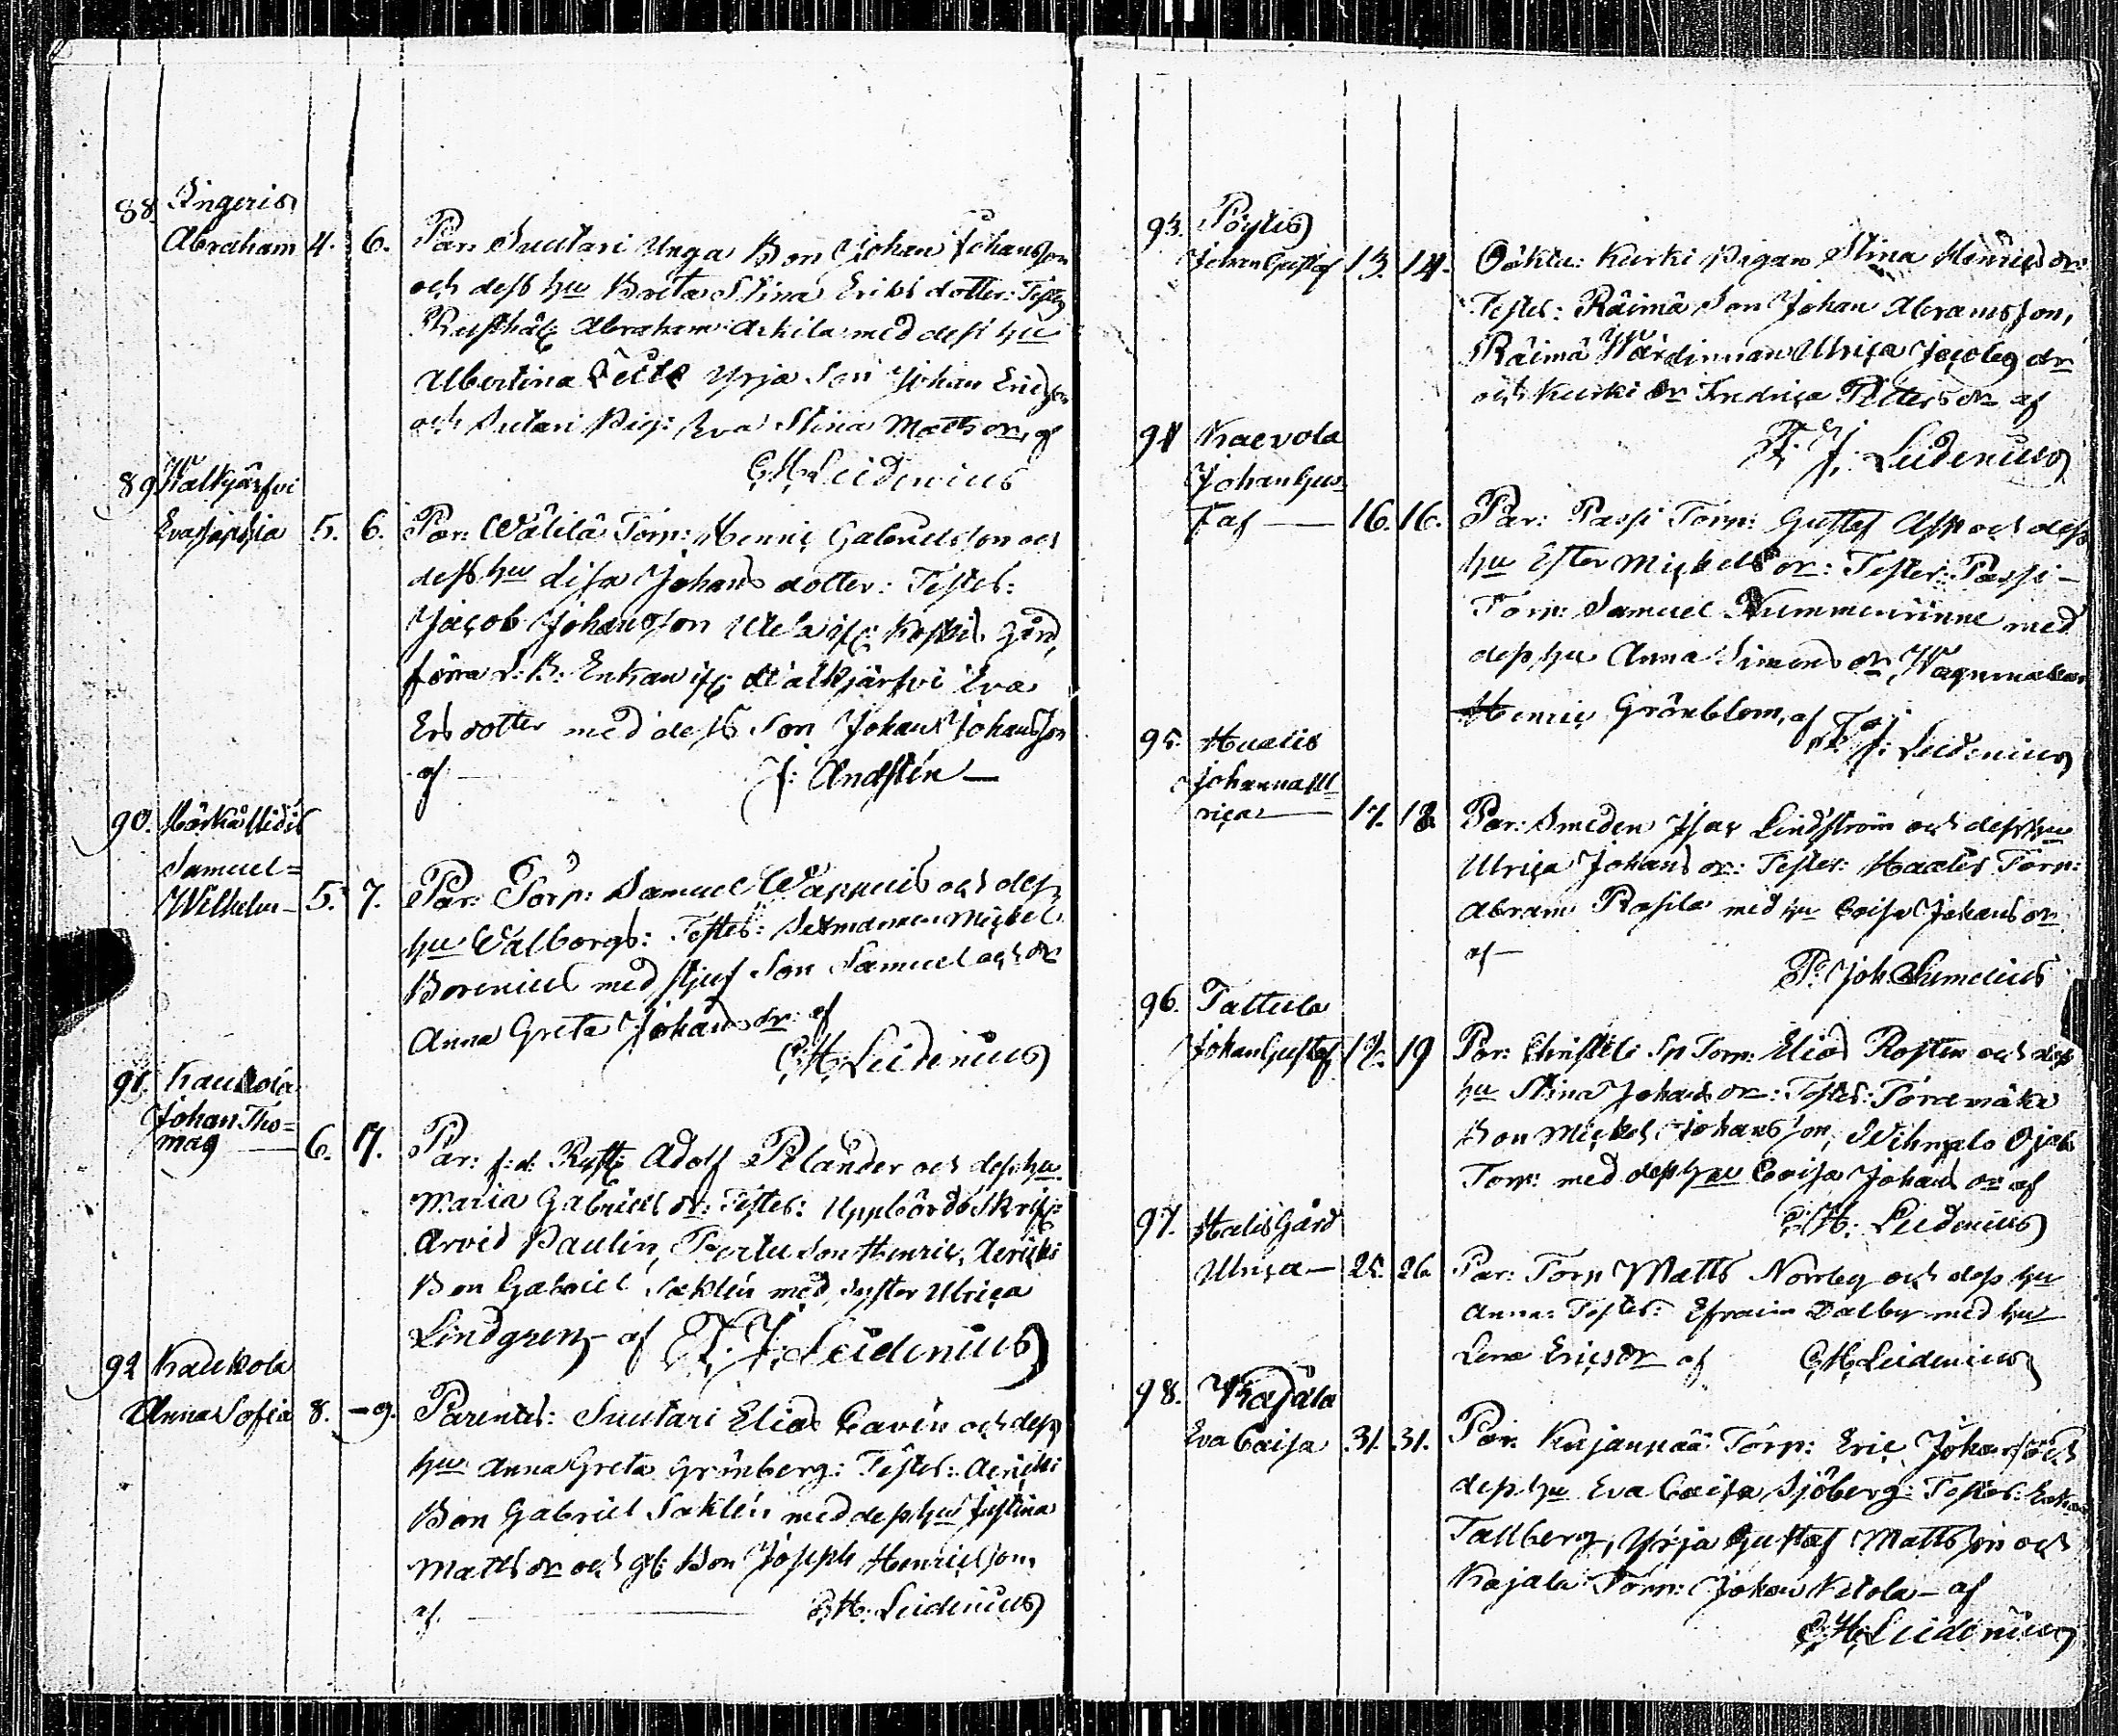 88. Ingeris
Abraham 4. 6. Par: Suutari Unga Bon Johan Johansson
och dess hu Brita Stina Eriks dotter: Testes
Rusthål: Abraham Arkila med dess hu
Albertina Yrja Son Johan Ericsson
och Sutari Pig: Eva Stina Matts dr, af
C.H. Leidenius
89 Walkjärfvi
Eva Sophia 5. 6. Par: Wälilä Torp: Henric Gabrielsson och
dess hu Lisa Johans dotter: Testes:
Jacob Johansson Koskis gård,
förra Enkan Walkjärfvi Eva
Ers dotter med dess Son Johan Johansson
af J: Andstén
90. Härkä
Samuel=
Wilhelm 5. 7. Par: Torp: Samuel Wappuis och dess
hu Walborg: Testes: Sexmannen Mickel
Borenius med stjuf Son Samuel och dr
Anna Greta Johans dr: af
C.H. Leidenius
91. Kaukola
Johan Tho=
mas 6. 7. Par: f:d: Rust: Adolf Pelander och dess hu
Maria Gabriels dr: Testes: Uppbörds Skrif:
Arvid Paulin, Pertu Son Henric, Aericki
Bon Gabriel Saklén med Syster Ulrica
Lindgren af F. J. Leidenius
92 Kaukola
Anna Sofia 8. 9. Parentes: Suutari Elias Cavén och dess
hu Anna Greta Grönberg: Testes: Aericki
Bon Gabriel Saklén med dess hu Justina
Matts dr och gl: Bon Joseph Henricsson
af. C.H. Leidenius
93. Pöytis
Johan Gustaf 13. 14. Oäkta: Kurki Pigan Stina Henrics dr:
Testes: Räimä Son Johan Abramsson,
Räimä Wärdinnan Ulrica Jacobs dr
och Kurki dr Fredrica Petters dr af
F. J. Leidenius
94 Kaevola
Johan Gus=
taf 16. 16. Par: Passi Torp: Gustaf Asp och dess
hu Ester Mickels dr: Testes: Passi
Torp: Samuel Nummenrinne med
dess hu Anna Simons dr, Wagnmakar
Henric Grönblom, af
F. J: Leidenius
95. Hualis
Johanna Ul
rica 17. 18. Par: Smeden Isac Lindström och dess hu
Ulrica Johans dr: Testes: Torp:
Abram Rasila med hu Caisa Johans dr
af
P: Joh Sumelius
96. Tattula
Johan Gustaf 19 Par: Christeli Sp Torp: Elias Rosten och dess
hu Stina Johans dr: Testes: Toramäki
Bon Mickel Johansson, Ojala
Torp: med dess hu Caisa Johans dr af
C.H: Leidenius
97. Halis Gård
Ulrica 25. 26. Par: Torp Matts Norrby och dess hu
Anna: Testes: Efraim Dalberg med hu
Lena Erics dr af C.H. Leidenius
98. Kajala
Eva Caisa 31. 31. Par: Kujanpää Torp: Eric Johansson och
dess hu Eva Caisa Sjöberg: Testes: Enkan
Tallberg, Yrja Gustaf Mattsson och
Kajala Torp: Johan Ketola af
C.H. Leidenius